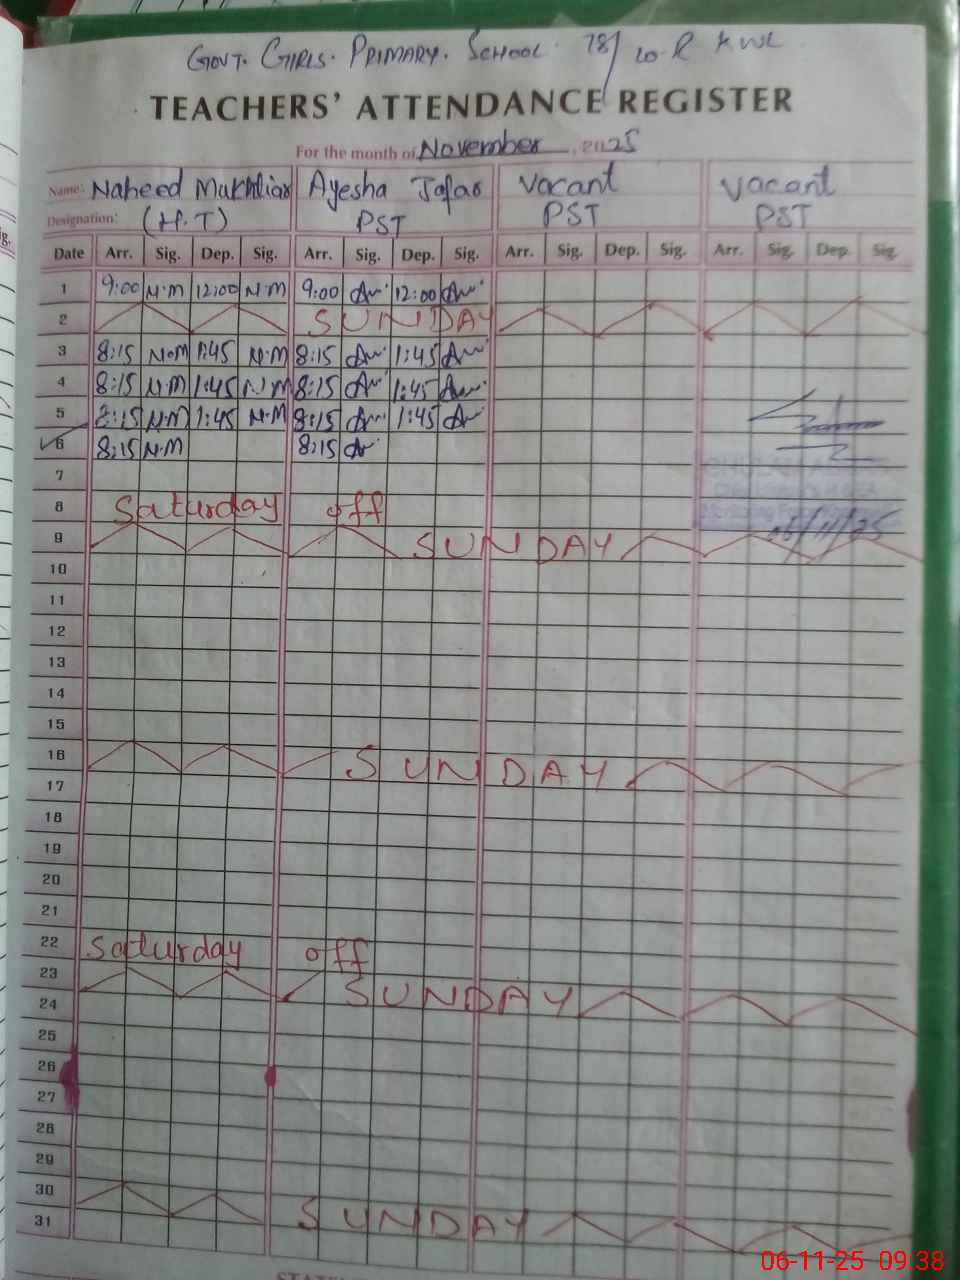 GOVT. GIRLS. PRIMARY. SCHOOL. 78/10-R KWL
TEACHERS' ATTENDANCE REGISTER
For the month of November, 2025
Name: Naheed Mukhtiar Ayesha Jafar Vacant Vacant
Designation: (H.T) PST PST PST
Date Arr. Sig. Dep. Sig. Arr. Sig. Dep. Sig. Arr. Sig. Dep. Sig. Arr. Sig. Dep. Sig.
1 9:00 N.M 12:00 N.M 9:00 12:00
2 SUNDAY
3 8:15 N.M 1:45 N.M 8:15 1:45
4 8:15 N.M 1:45 N.M 8:15 1:45
5 8:15 N.M 1:45 N.M 8:15 1:45
6 8:15 N.M 8:15
7
8 Saturday off
9 SUNDAY
06/11/25
10
11
12
13
14
15
16 SUNDAY
17
18
19
20
21
22 Saturday off
23 SUNDAY
24
25
26
27
28
29
30 SUNDAY
31
06-11-25 09.38